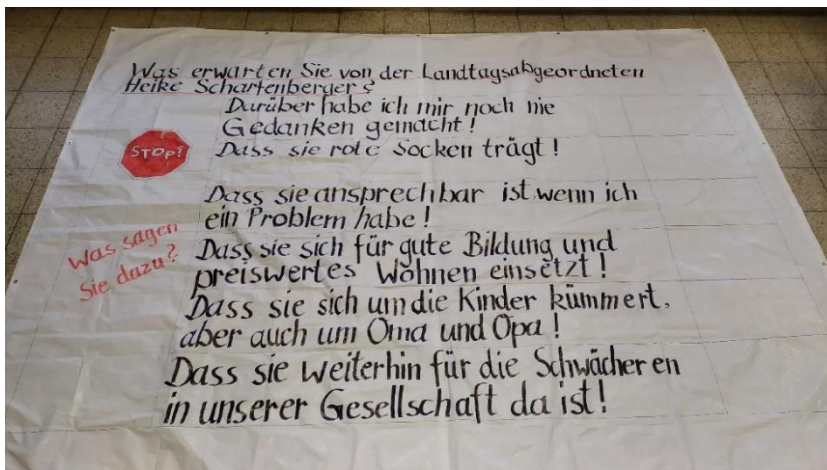 Was erwarten Sie von der Landtagsabgeordneten
Heike Scharfenberger?
Darüber habe ich mir noch nie
Gedanken gemacht!
STOP!
Dass sie rote Socken trägt!
Dass sie ansprechbar ist wenn ich
ein Problem habe!
Was sagen
Sie dazu?
Dass sie sich für gute Bildung und
preiswertes Wohnen einsetzt!
Dass sie sich um die Kinder kümmert,
aber auch um Oma und Opa!
Dass sie weiterhin für die Schwächeren
in unserer Gesellschaft da ist!